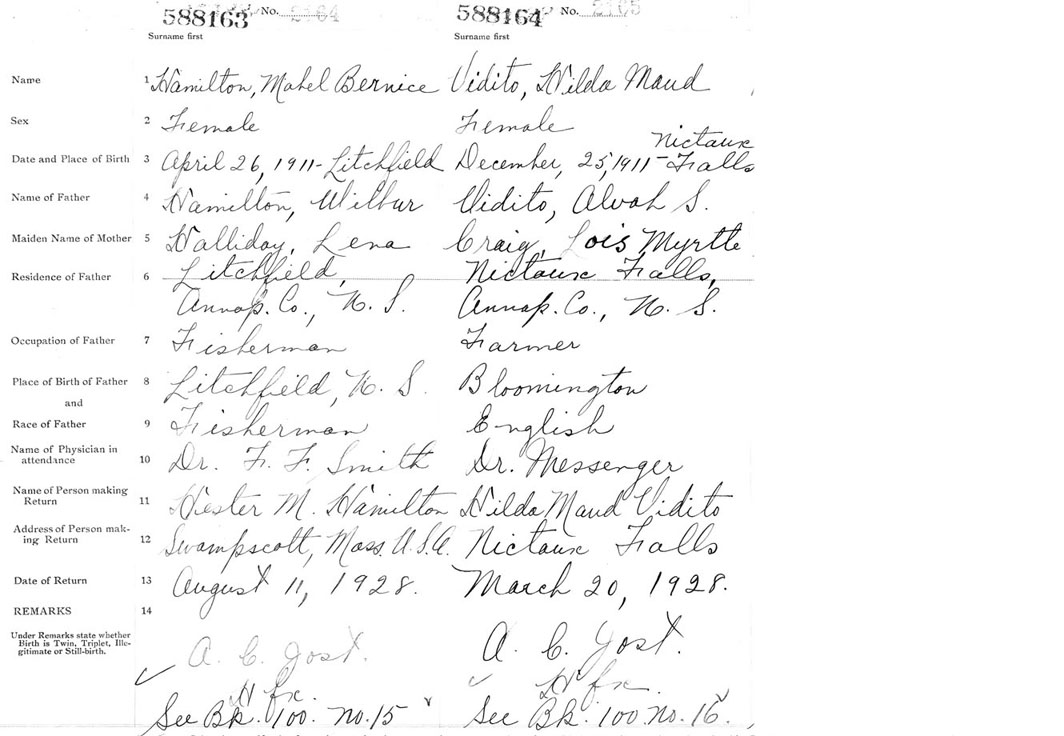 588163 No. 2164 588164 No. 2165
Surname first Surname first
Name 1 Hamilton, Mabel Bernice Vidito, Hilda Maud
Sex 2 Female Female
Nictaux
Date and Place of Birth 3 April 26, 1911 - Litchfield December, 25, 1911 - Falls
Name of Father 4 Hamilton, Wilbur Vidito, Alvah S.
Maiden Name of Mother 5 Halliday, Lena Craig, Lois Myrtle
Residence of Father 6 Litchfield, Nictaux Falls,
Annap. Co., N. S. Annap. Co., N. S.
Occupation of Father 7 Fisherman Farmer
Place of Birth of Father 8 Litchfield, N. S. Bloomington
and
Race of Father 9 Fisherman English
Name of Physician in
attendance 10 Dr. F. F. Smith Dr. Messenger
Name of Person making
Return 11 Hester M. Hamilton Hilda Maud Vidito
Address of Person mak-
ing Return 12 Swampscott, Mass. U.S.A. Nictaux Falls
Date of Return 13 August 11, 1928. March 20, 1928.
REMARKS 14
Under Remarks state whether
Birth is Twin, Triplet, Ille-
gitimate or Still-birth.
A. C. Jost. A. C. Jost.
Hfx. Hfx.
See Bk. 100. No. 15 See Bk. 100 No. 16.